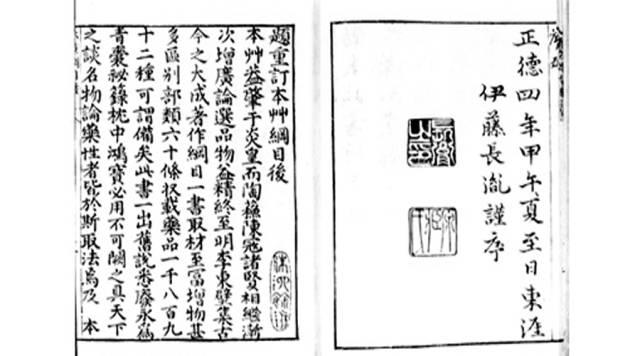 正德四年甲午夏至日東涯
伊藤長胤謹序
題重訂本艸綱目後
本艸蓋肇于炎皇而陶蘇陳寇諸賢相繼漸
次增廣論選品物益精終至明李東璧集古
今之大成者作綱目一書取材至富增物甚
多區别部類六十條收載藥品一千八百九
十二種可謂備矣此書一出舊說悉廢永為
青囊祕籙枕中鴻寶必用不可闕之具天下
之談名物論藥性者皆於斯取法焉及 本